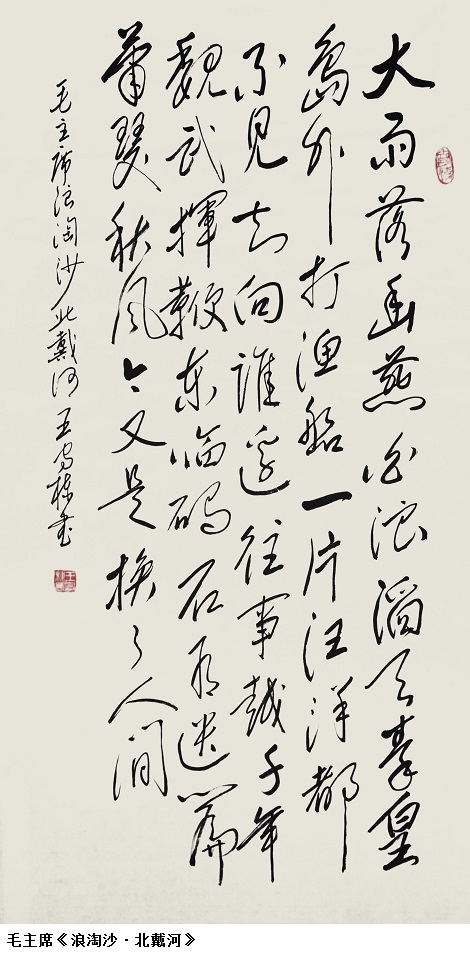 大雨落幽燕白浪滔天秦皇
島外打渔船一片汪洋都
不見知向誰邊往事越千年
魏武揮鞭东临碣石有遗篇
萧瑟秋风今又是换了人间
毛主席浪淘沙北戴河王书
毛主席《浪淘沙·北戴河》